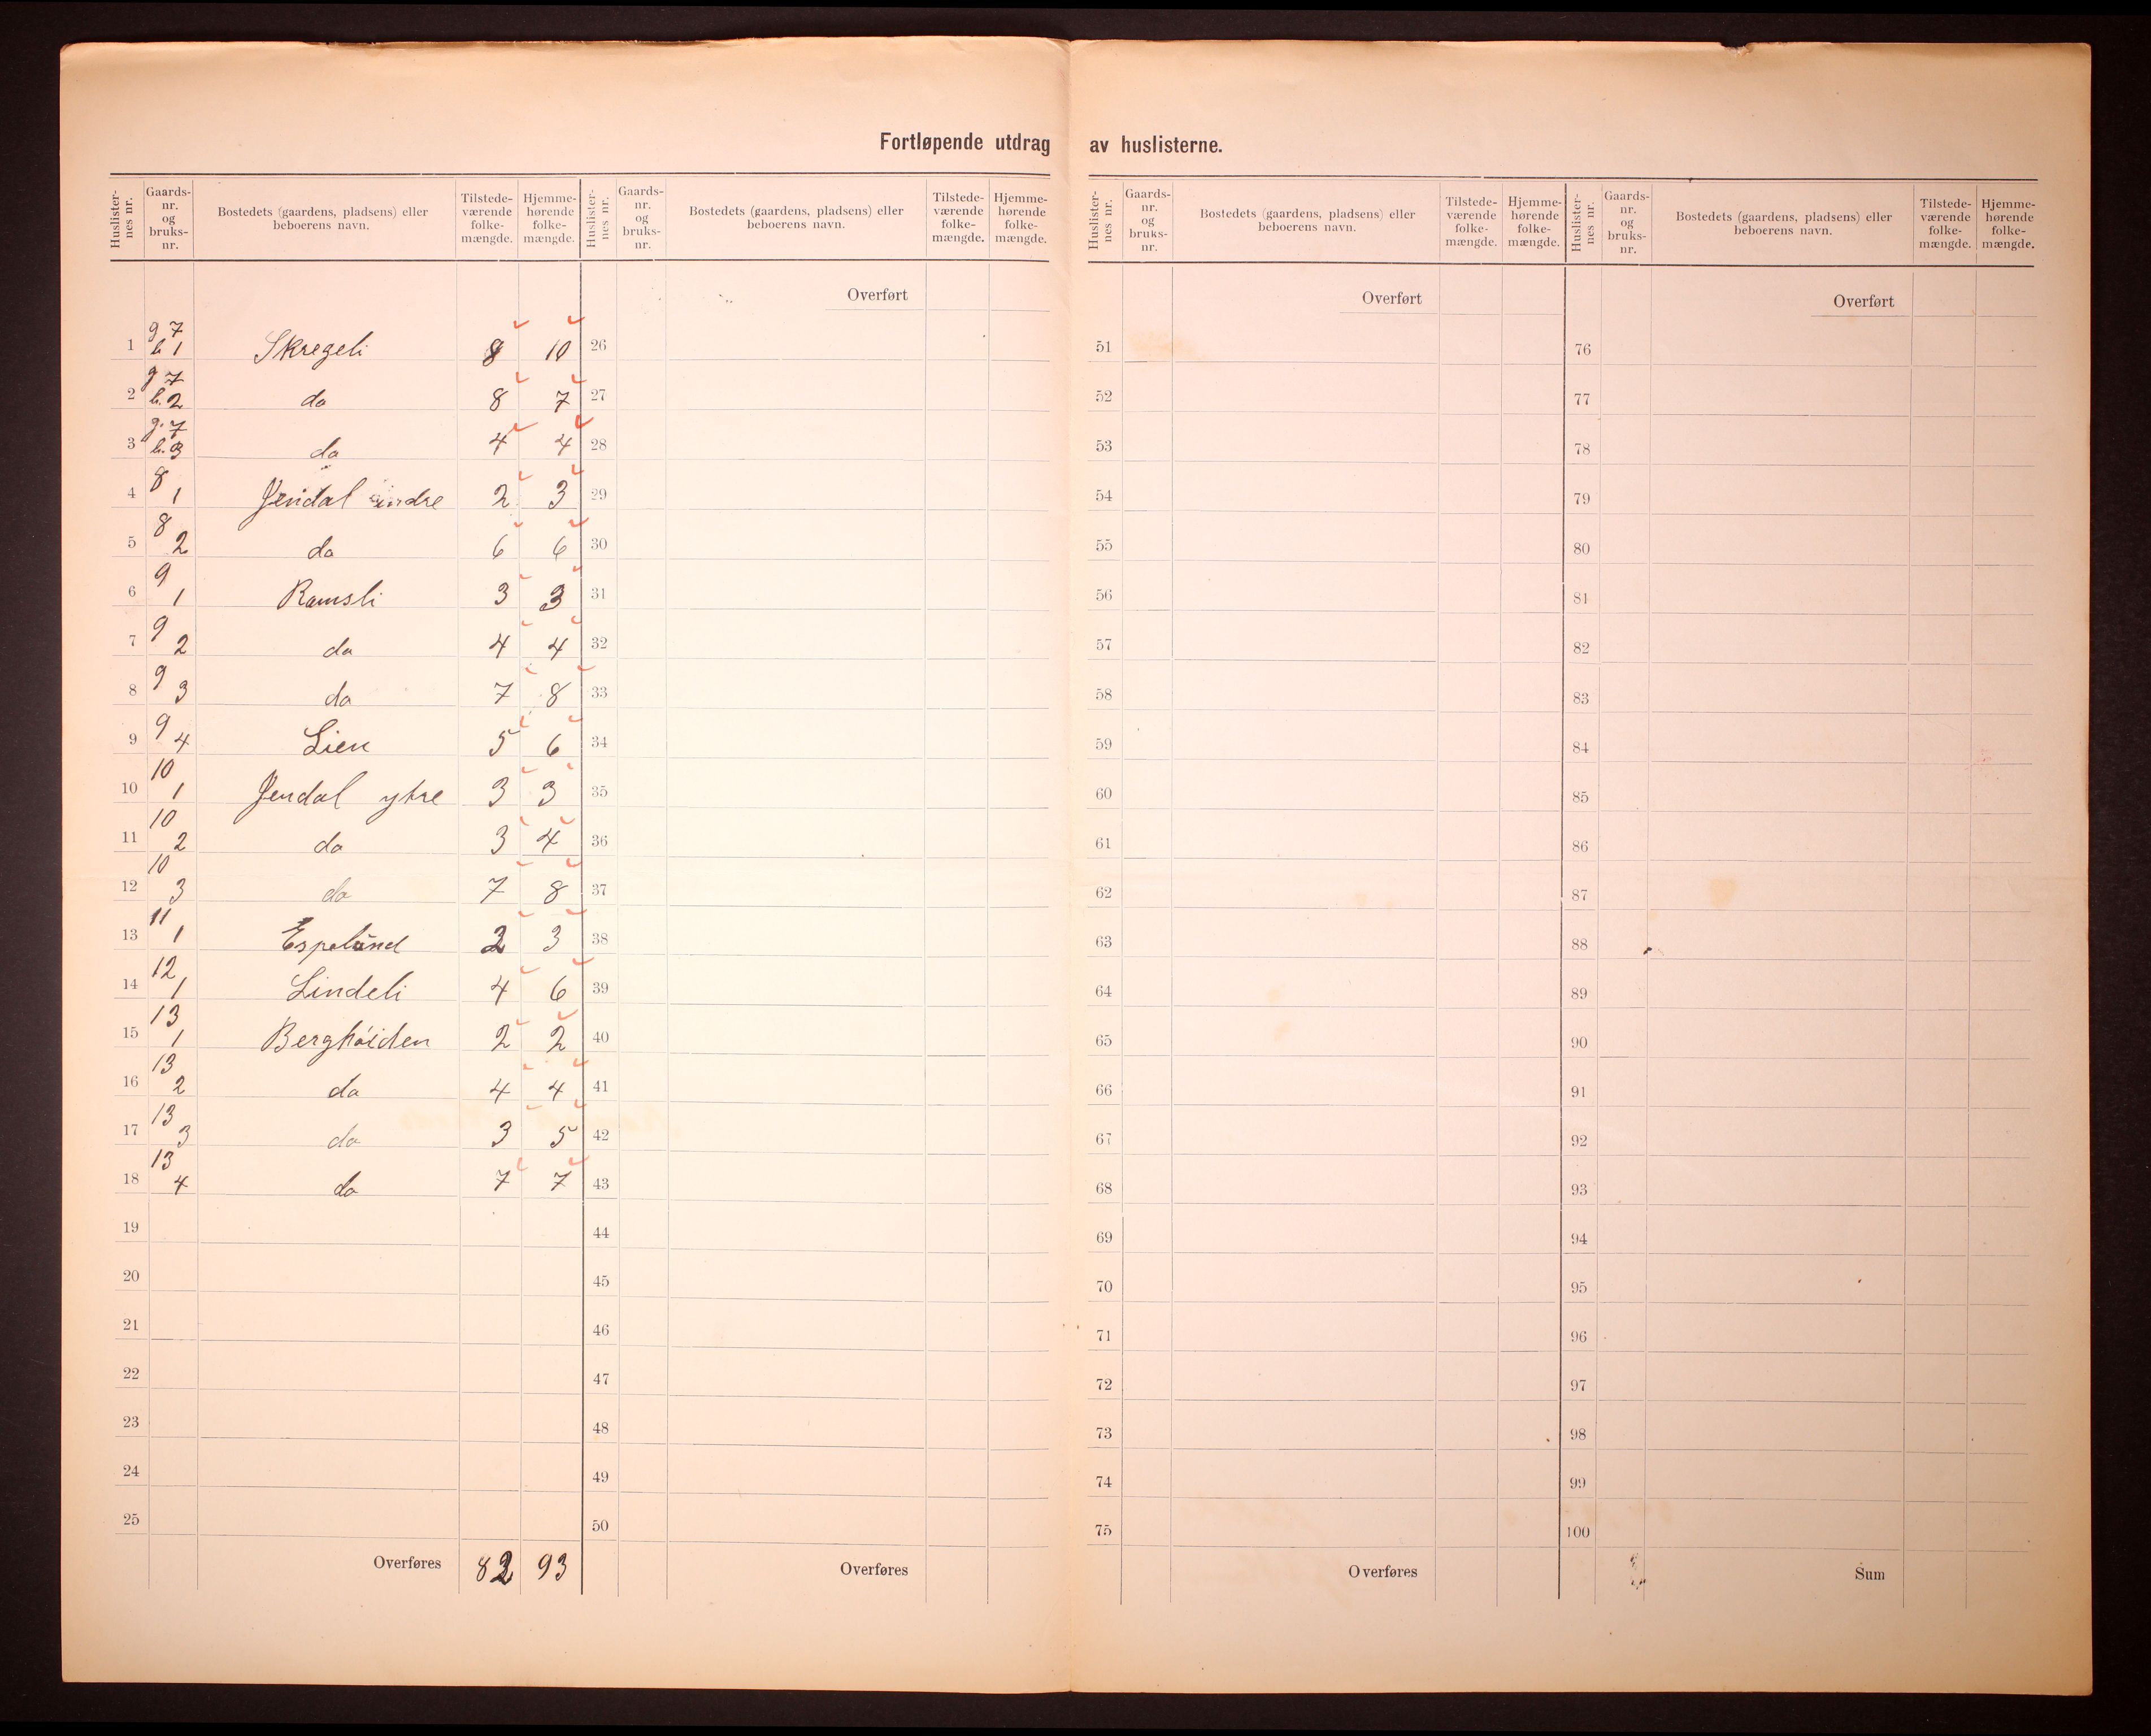 Fortløpende utdrag av huslisterne.
Huslisternes nr. Gaardsnr. og bruksnr. Bostedets (gaardens, pladsens) eller beboerens navn. Tilstedeværende folkemængde. Hjemmehørende folkemængde. Huslisternes nr. Gaardsnr. og bruksnr. Bostedets (gaardens, pladsens) eller beboerens navn. Tilstedeværende folkemængde. Hjemmehørende folkemængde. Huslisternes nr. Gaardsnr. og bruksnr. Bostedets (gaardens, pladsens) eller beboerens navn. Tilstedeværende folkemængde. Hjemmehørende folkemængde. Huslisternes nr. Gaardsnr. og bruksnr. Bostedets (gaardens, pladsens) eller beboerens navn. Tilstedeværende folkemængde. Hjemmehørende folkemængde.
Overført Overført Overført
1 g 7 b 1 Skregeli 8 10 26 51 76
2 g 7 b. 2 do 8 7 27 52 77
3 g. 7 b. 3 do 4 4 28 53 78
4 8 1 Jendal indre 2 3 29 54 79
5 8 2 do 6 6 30 55 80
6 9 1 Ramsli 3 3 31 56 81
7 9 2 do 4 4 32 57 82
8 9 3 do 7 8 33 58 83
9 9 4 Lien 5 6 34 59 84
10 10 1 Jendal ytre 3 3 35 60 85
11 10 2 do 3 4 36 61 86
12 10 3 do 7 8 37 62 87
13 11 1 Espelund 2 3 38 63 88
14 12 1 Lindeli 4 6 39 64 89
15 13 1 Berghøiden 2 2 40 65 90
16 13 2 do 4 4 41 66 91
17 13 3 do 3 5 42 67 92
18 13 4 do 7 7 43 68 93
19 44 69 94
20 45 70 95
21 46 71 96
22 47 72 97
23 48 73 98
24 49 74 99
25 50 75 100
Overføres 82 93 Overføres Overføres Sum